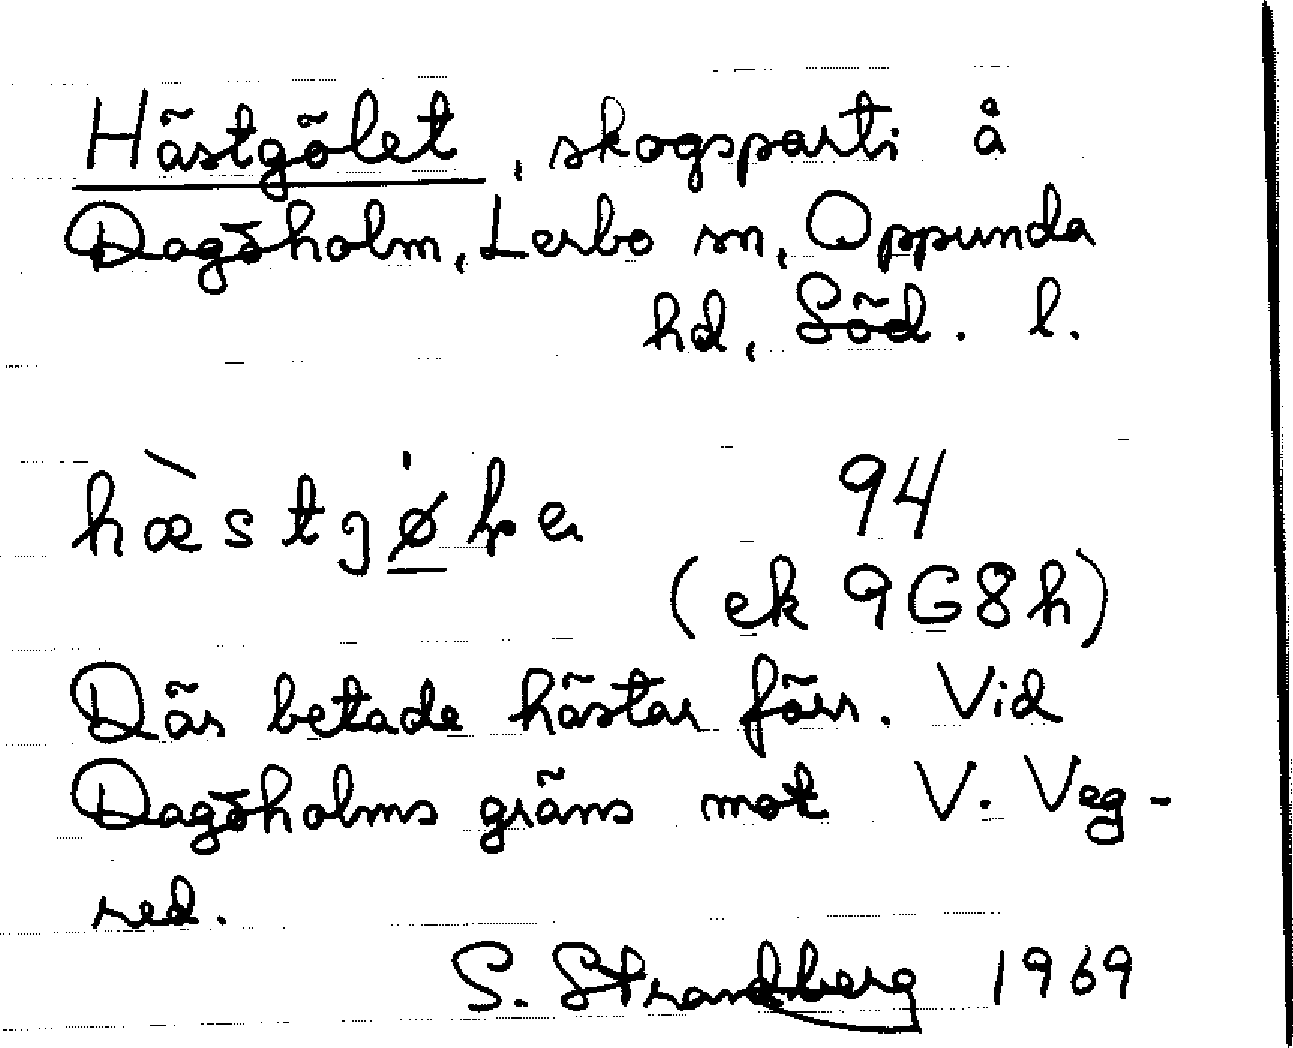 Hästgölet, skogsparti å
Dagsholm, Lerbo sn, Oppunda
hd, Söd. l.
94
(ek 9G8h)
Där betade hästar förr. Vid
Dagsholms gräns mot V. Veg-
red.
S. Strandberg 1969